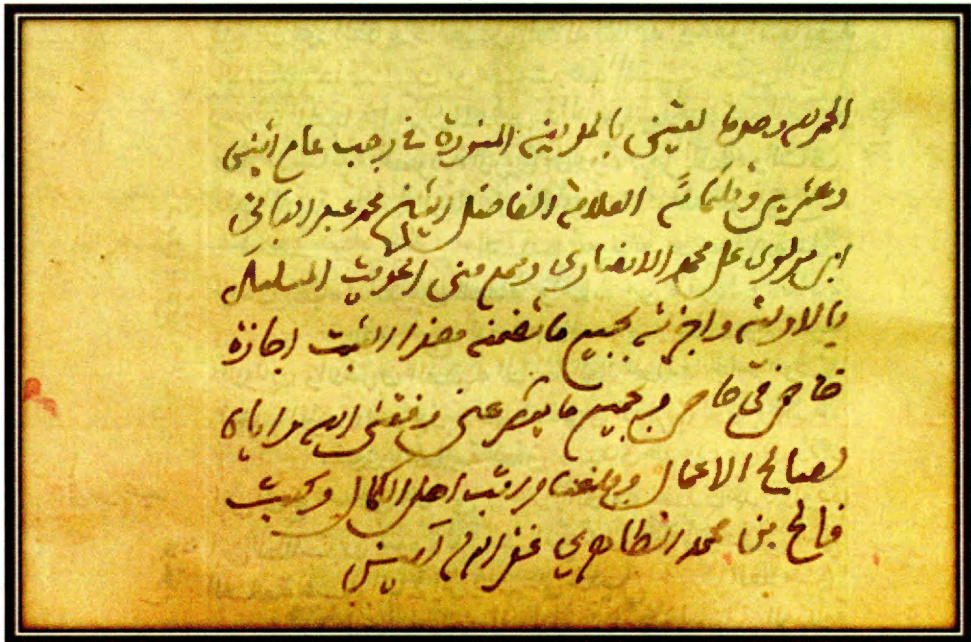 الحمد لله وحده لقيني بالمدينة المنورة في رجب عام اثنين
وعشرين وثلثمائة العلامة الفاضل الشيخ محمد عبد الباقي
ابن مولوي علي محمد الانصاري وسمع مني الحديث المسلسل
بالاولية واجزته بجميع ما تضمنه هذا الثبت اجازة
خاص في خاص وبجميع ما يؤثر عني وفقني الله واياه
لصالح الاعمال وبلغنا رتب اهل الكمال وكتب
فالح بن محمد الظاهري غفر الله له آمين